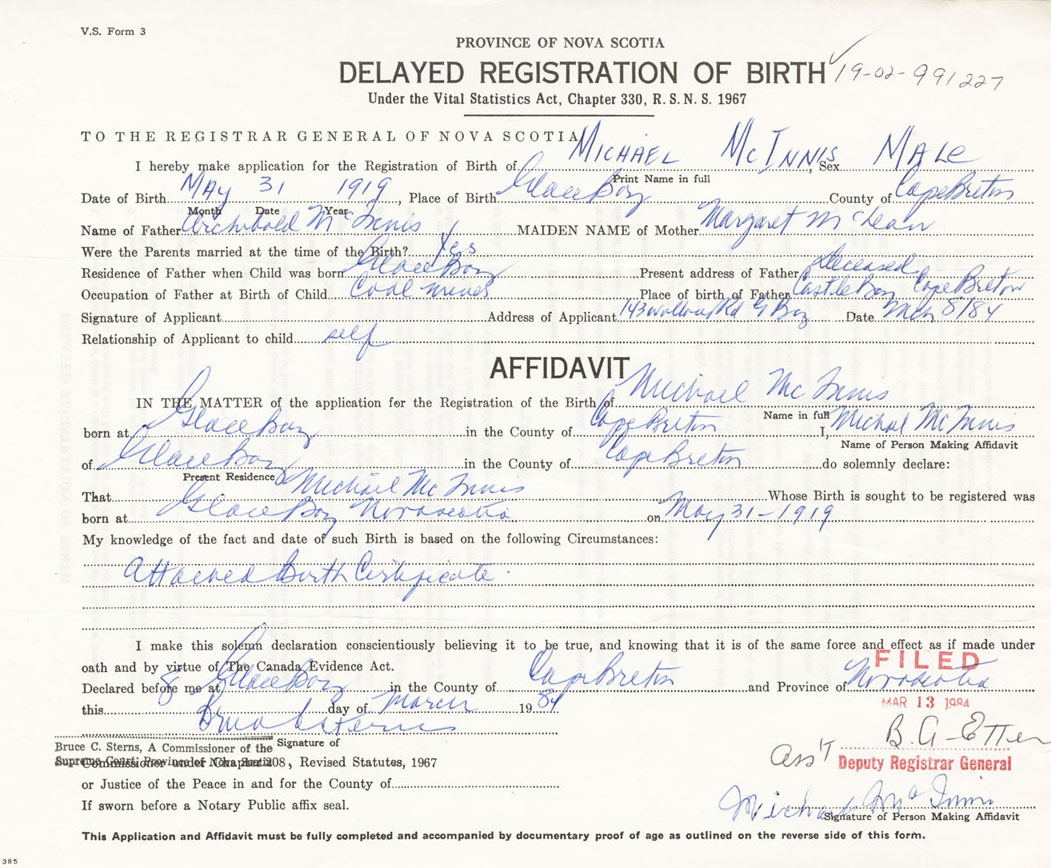 V.S. Form 3
PROVINCE OF NOVA SCOTIA
DELAYED REGISTRATION OF BIRTH 19-02-991227
Under the Vital Statistics Act, Chapter 330, R. S. N. S. 1967
TO THE REGISTRAR GENERAL OF NOVA SCOTIA
I hereby make application for the Registration of Birth of MICHAEL McINNIS Sex MALE
Print Name in full
Date of Birth MAY 31 1919, Place of Birth Glace Bay County of Cape Breton
Month Date Year
Name of Father Archibald McInnis MAIDEN NAME of Mother Margaret McLean
Were the Parents married at the time of the Birth? Yes
Residence of Father when Child was born Glace Bay Present address of Father Deceased
Occupation of Father at Birth of Child Coal miner Place of birth of Father Castle Bay Cape Breton
Signature of Applicant Address of Applicant 143 Rd G Bay Date Mch 8/84
Relationship of Applicant to child self
AFFIDAVIT
IN THE MATTER of the application for the Registration of the Birth of Michael McInnis
Name in full
born at Glace Bay in the County of Cape Breton I, Michael McInnis
Name of Person Making Affidavit
of Glace Bay in the County of Cape Breton do solemnly declare:
Present Residence
That Michael McInnis Whose Birth is sought to be registered was
born at Glace Bay Nova Scotia on May 31-1919
My knowledge of the fact and date of such Birth is based on the following Circumstances:
Attached Birth Certificate.
I make this solemn declaration conscientiously believing it to be true, and knowing that it is of the same force and effect as if made under
oath and by virtue of The Canada Evidence Act.
FILED
Declared before me at Glace Bay in the County of Cape Breton and Province of Nova Scotia
this 8 day of March 1984
MAR 13 1984
Bruce C Sterns
B. A. Etter
Signature of
Bruce C. Sterns, A Commissioner of the
Supreme Court Province of Nova Scotia
Commissioner under Chapter 208, Revised Statutes, 1967
Ass'T Deputy Registrar General
or Justice of the Peace in and for the County of
Michael McInnis
If sworn before a Notary Public affix seal.
Signature of Person Making Affidavit
This Application and Affidavit must be fully completed and accompanied by documentary proof of age as outlined on the reverse side of this form.
385